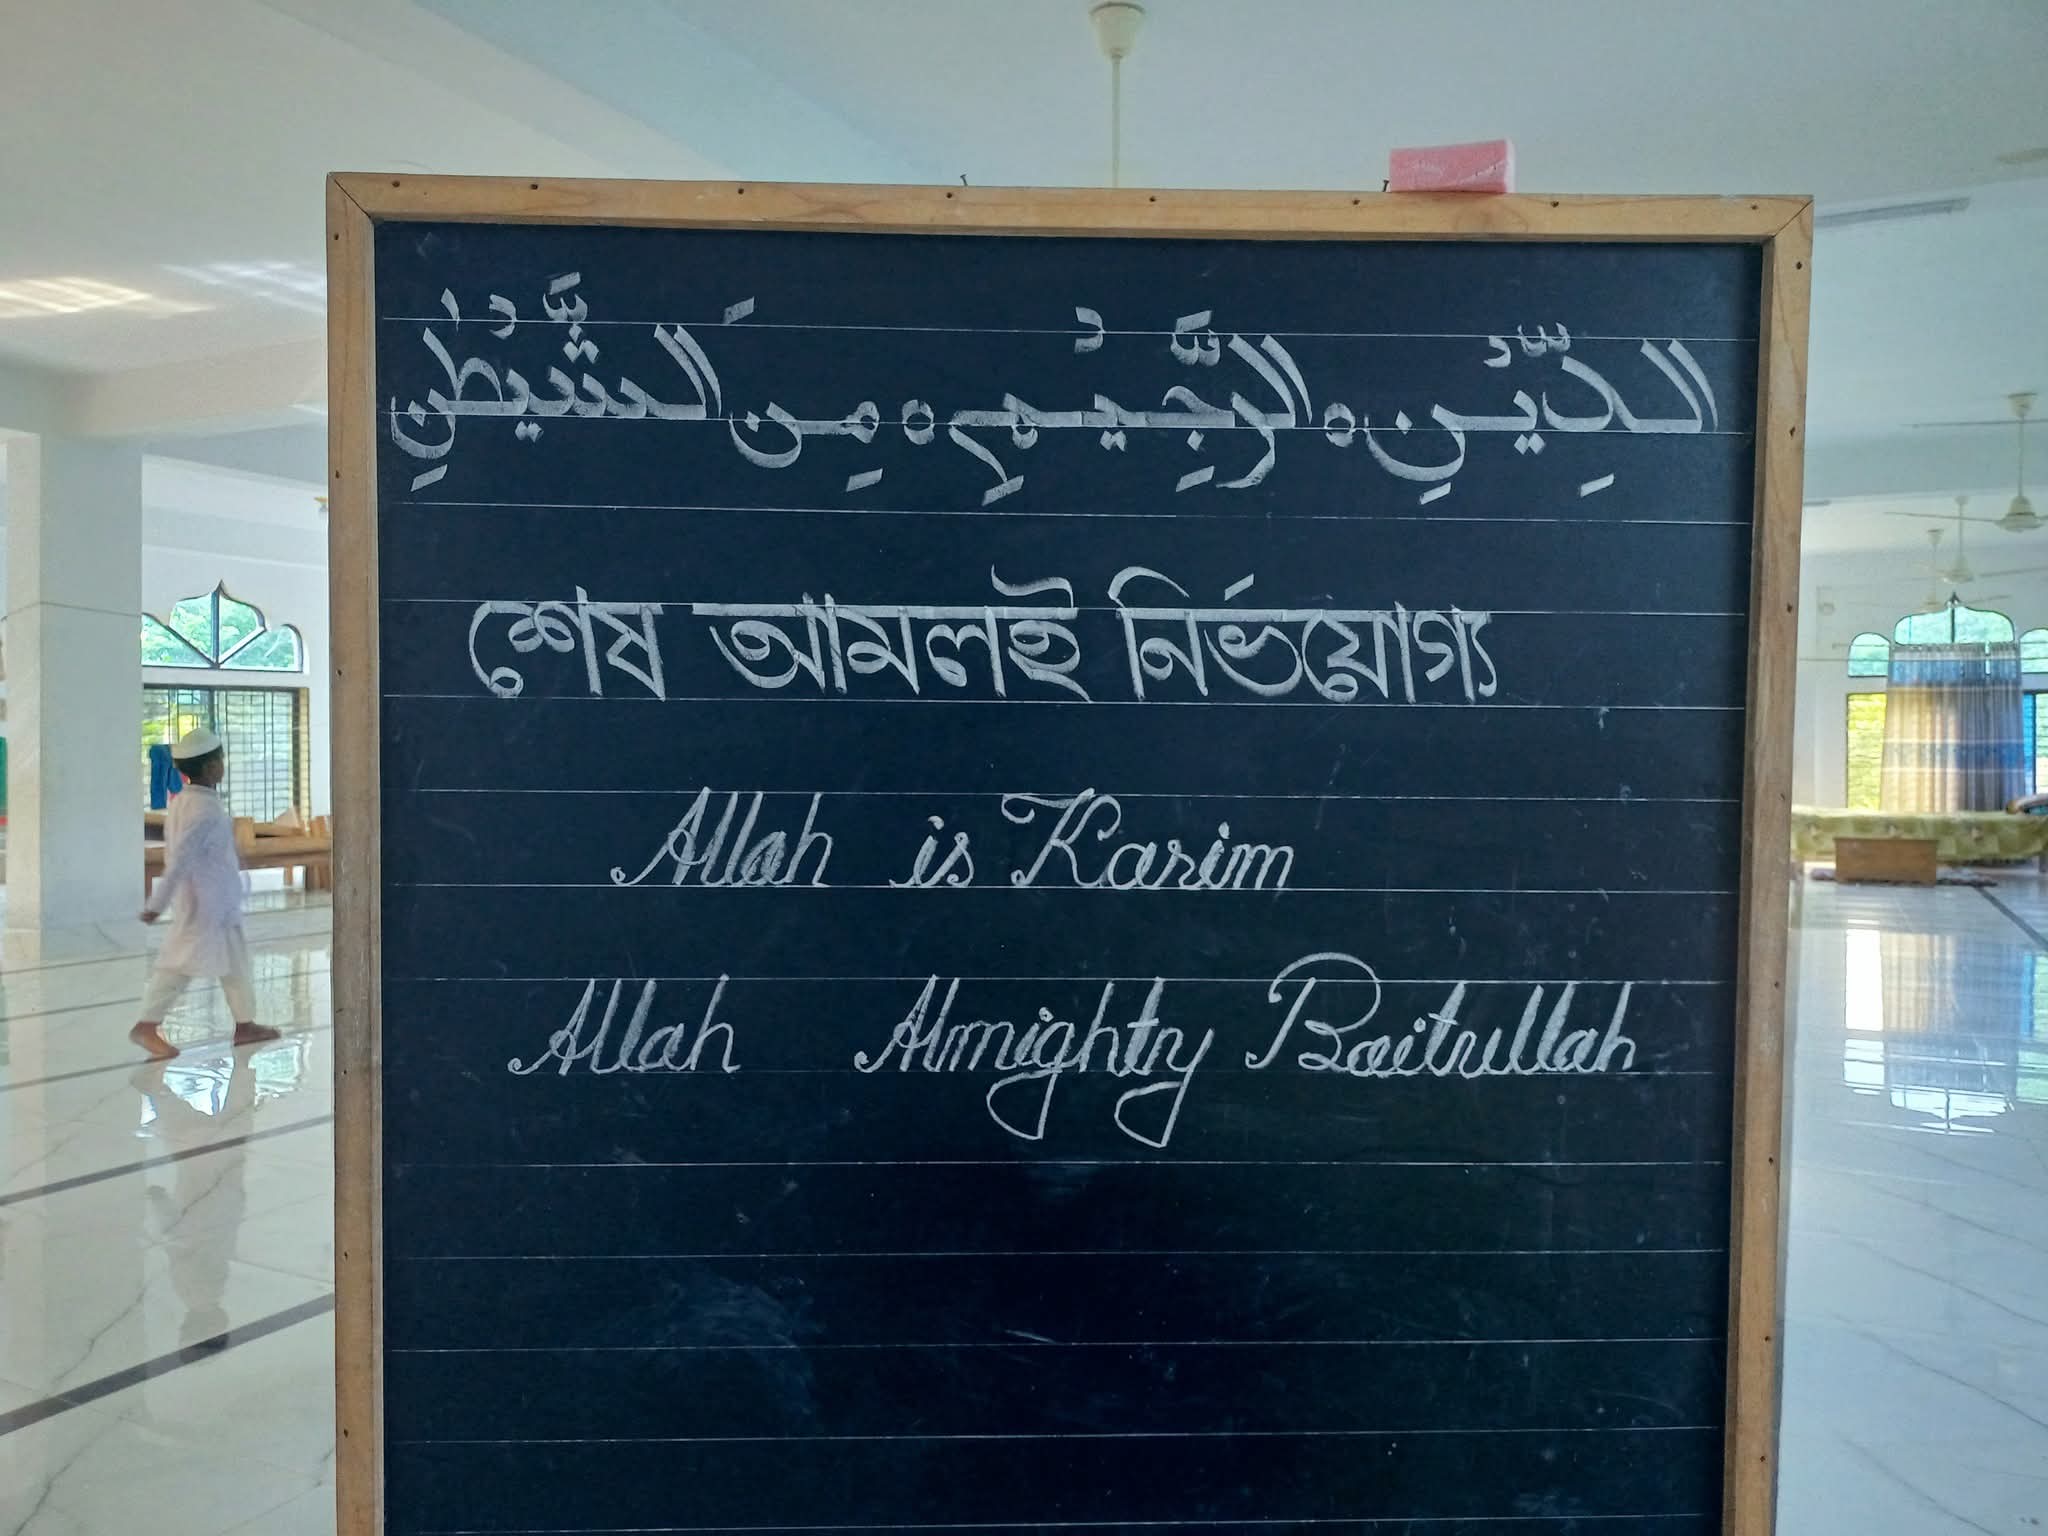 الدِّيْنِ ه الرَّجِيْمِ ه مِنَ الشَّيْطٰنِ
শেষ আমলই নির্ভয়োগ্য
Allah is Karim
Allah Almighty Baitullah